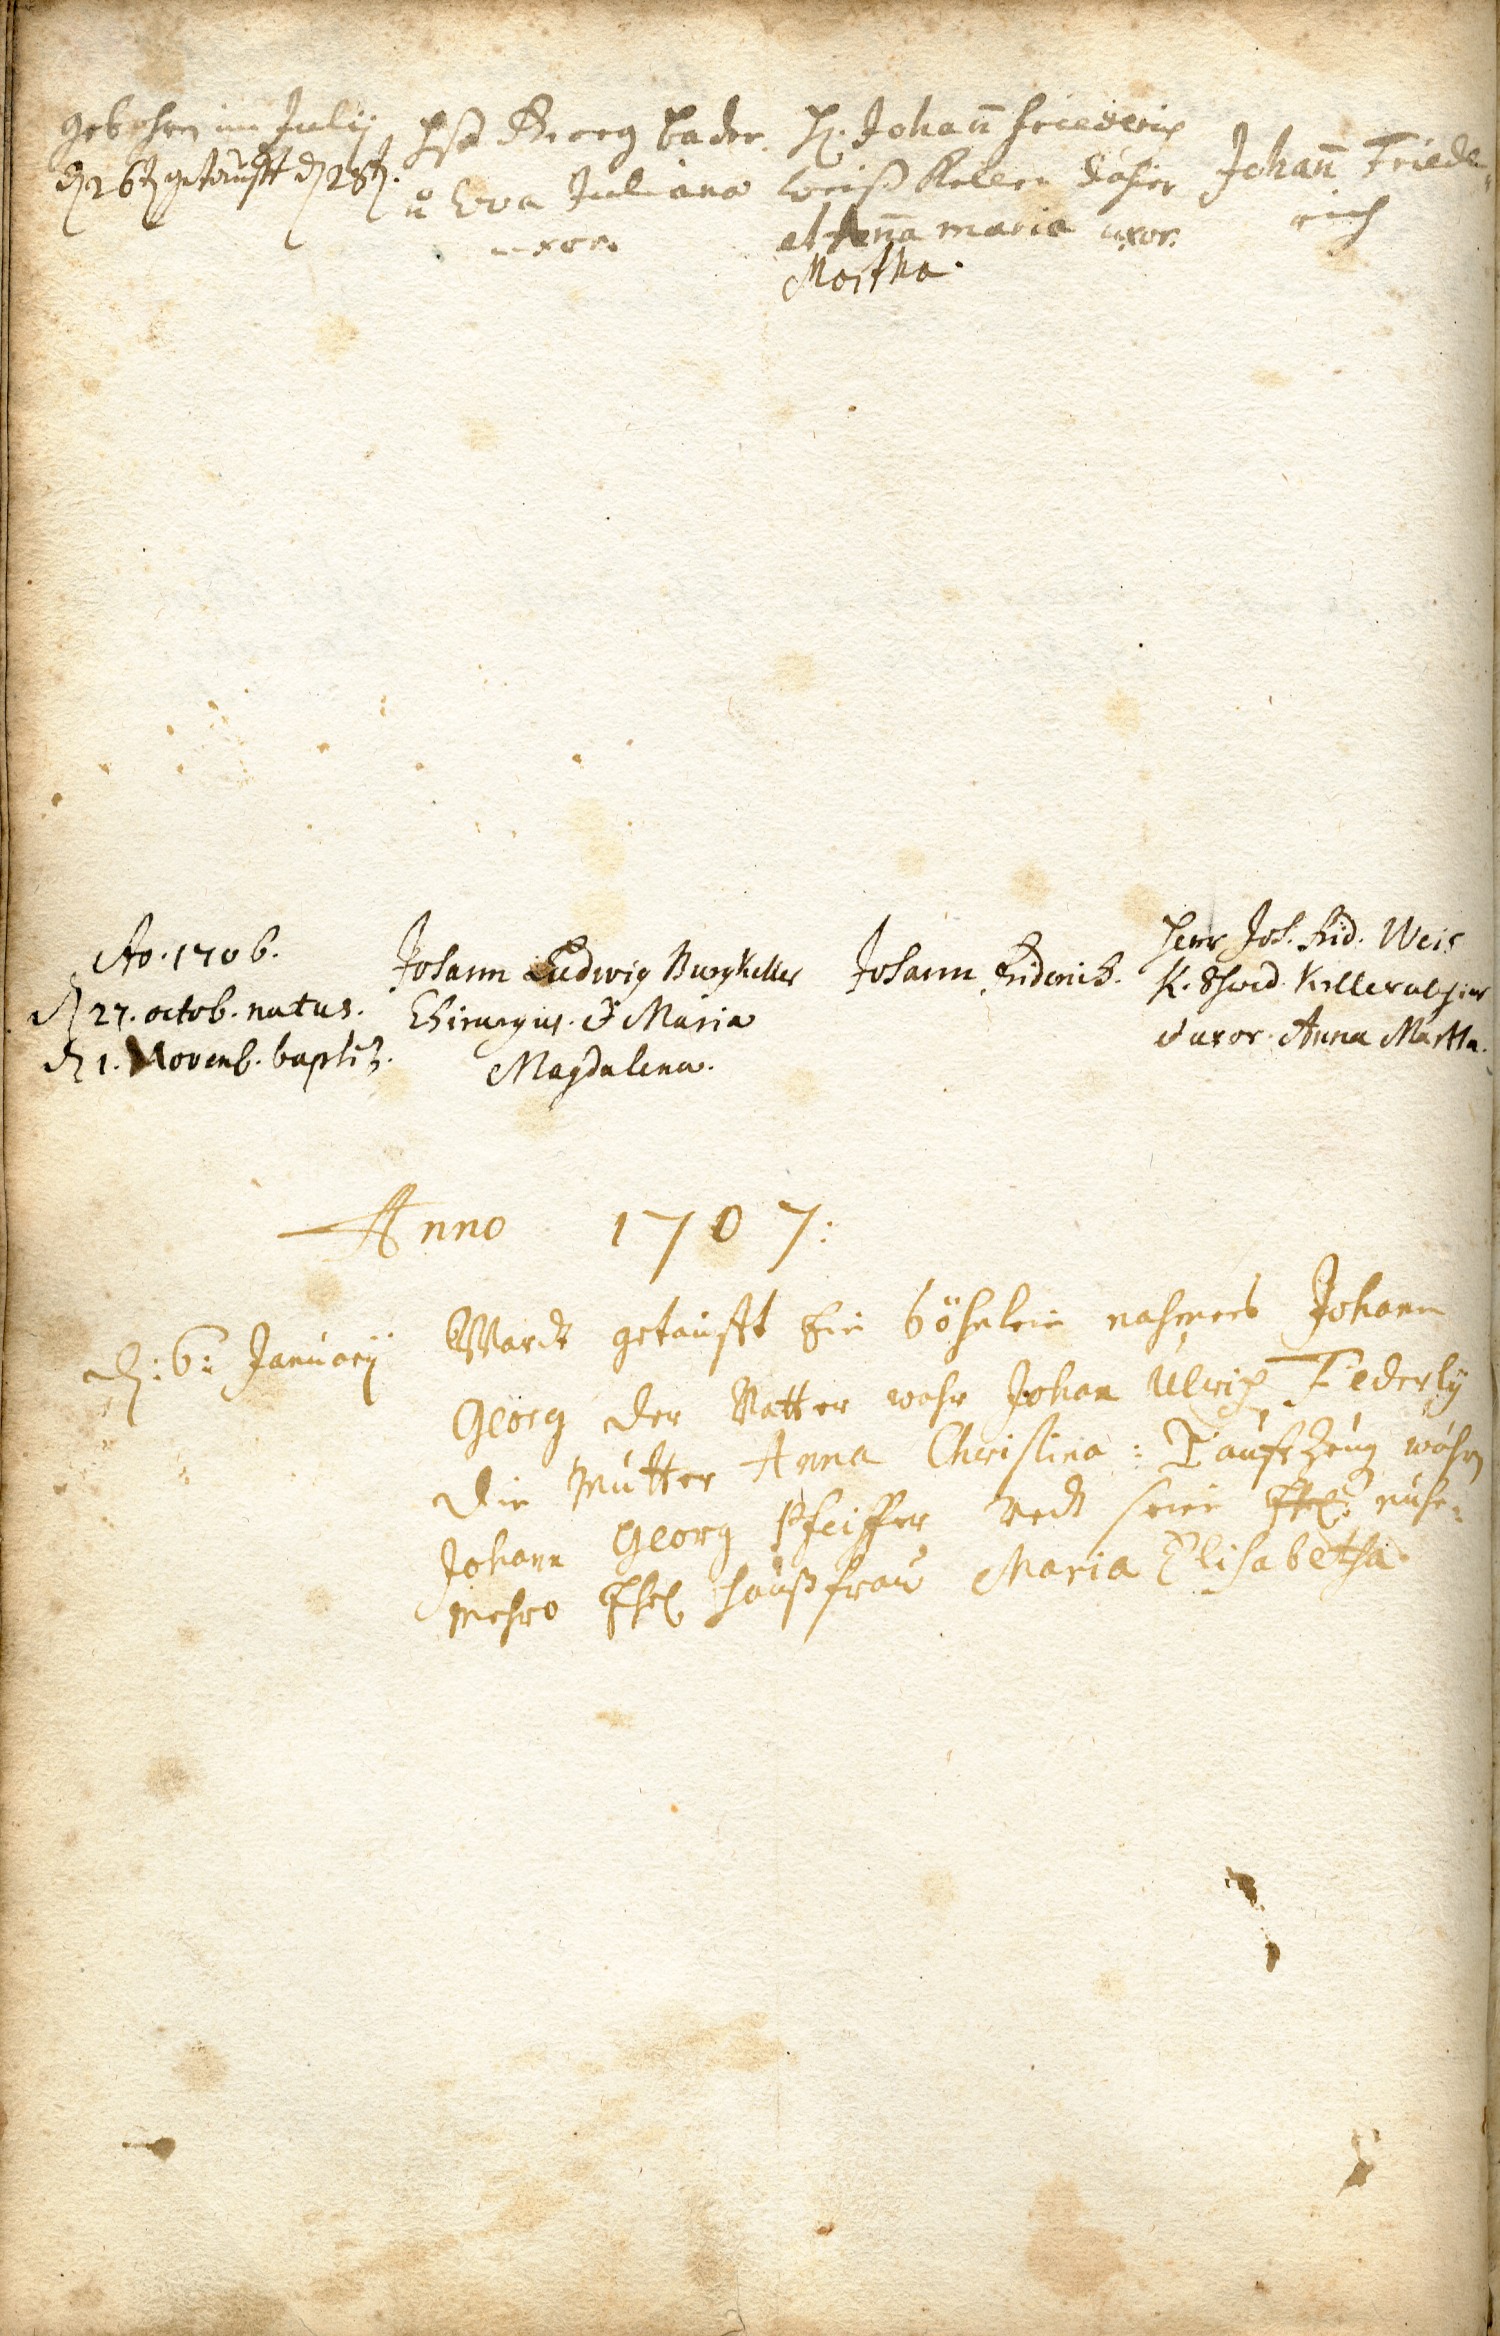 gebohren im Julij
dn 26t getaufft dn 28t.
Georg Bader.
u Eva Juliana
uxor.
H. Johann Friederich
Weiß Keller dahier
et Anna maria uxor.
Martha.
Johann Friede-
rich
Ao. 1706.
dn 27. octob. natus.
dn 1. Novemb. baptiz.
Johann Ludwig Burgkeller
Chirurgus. & Maria
Magdalena.
Johann Friderich.
Herr Joh. Frid. Weis
K. Schwed. Keller alhier
& uxor. Anna Martha.
Anno 1707:
dn: 6: January
Wardt getaufft Ein Söhnlein nahmens Johann
Georg der Vatter wahr Johan Ulrich Federly
die Mutter Anna Christina: Tauffzeug wahrn
Johann Georg Pfeiffer Undt seine Ehel: nuhe-
mehro Ehel haußfrau Maria Elisabetha.